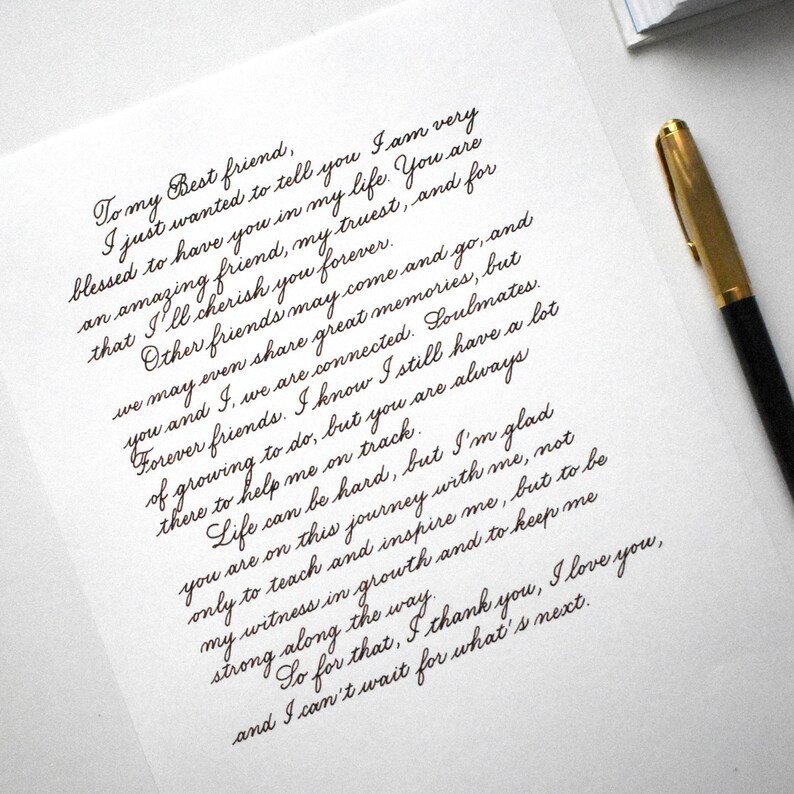 To my Best friend,
I just wanted to tell you I am very
blessed to have you in my life. You are
an amazing friend, my truest, and for
that I'll cherish you forever.
Other friends may come and go, and
we may even share great memories, but
you and I, we are connected. Soulmates.
Forever friends. I know I still have a lot
of growing to do, but you are always
there to help me on track.
Life can be hard, but I'm glad
you are on this journey with me, not
only to teach and inspire me, but to be
my witness in growth and to keep me
strong along the way.
So for that, I thank you, I love you,
and I can't wait for what's next.